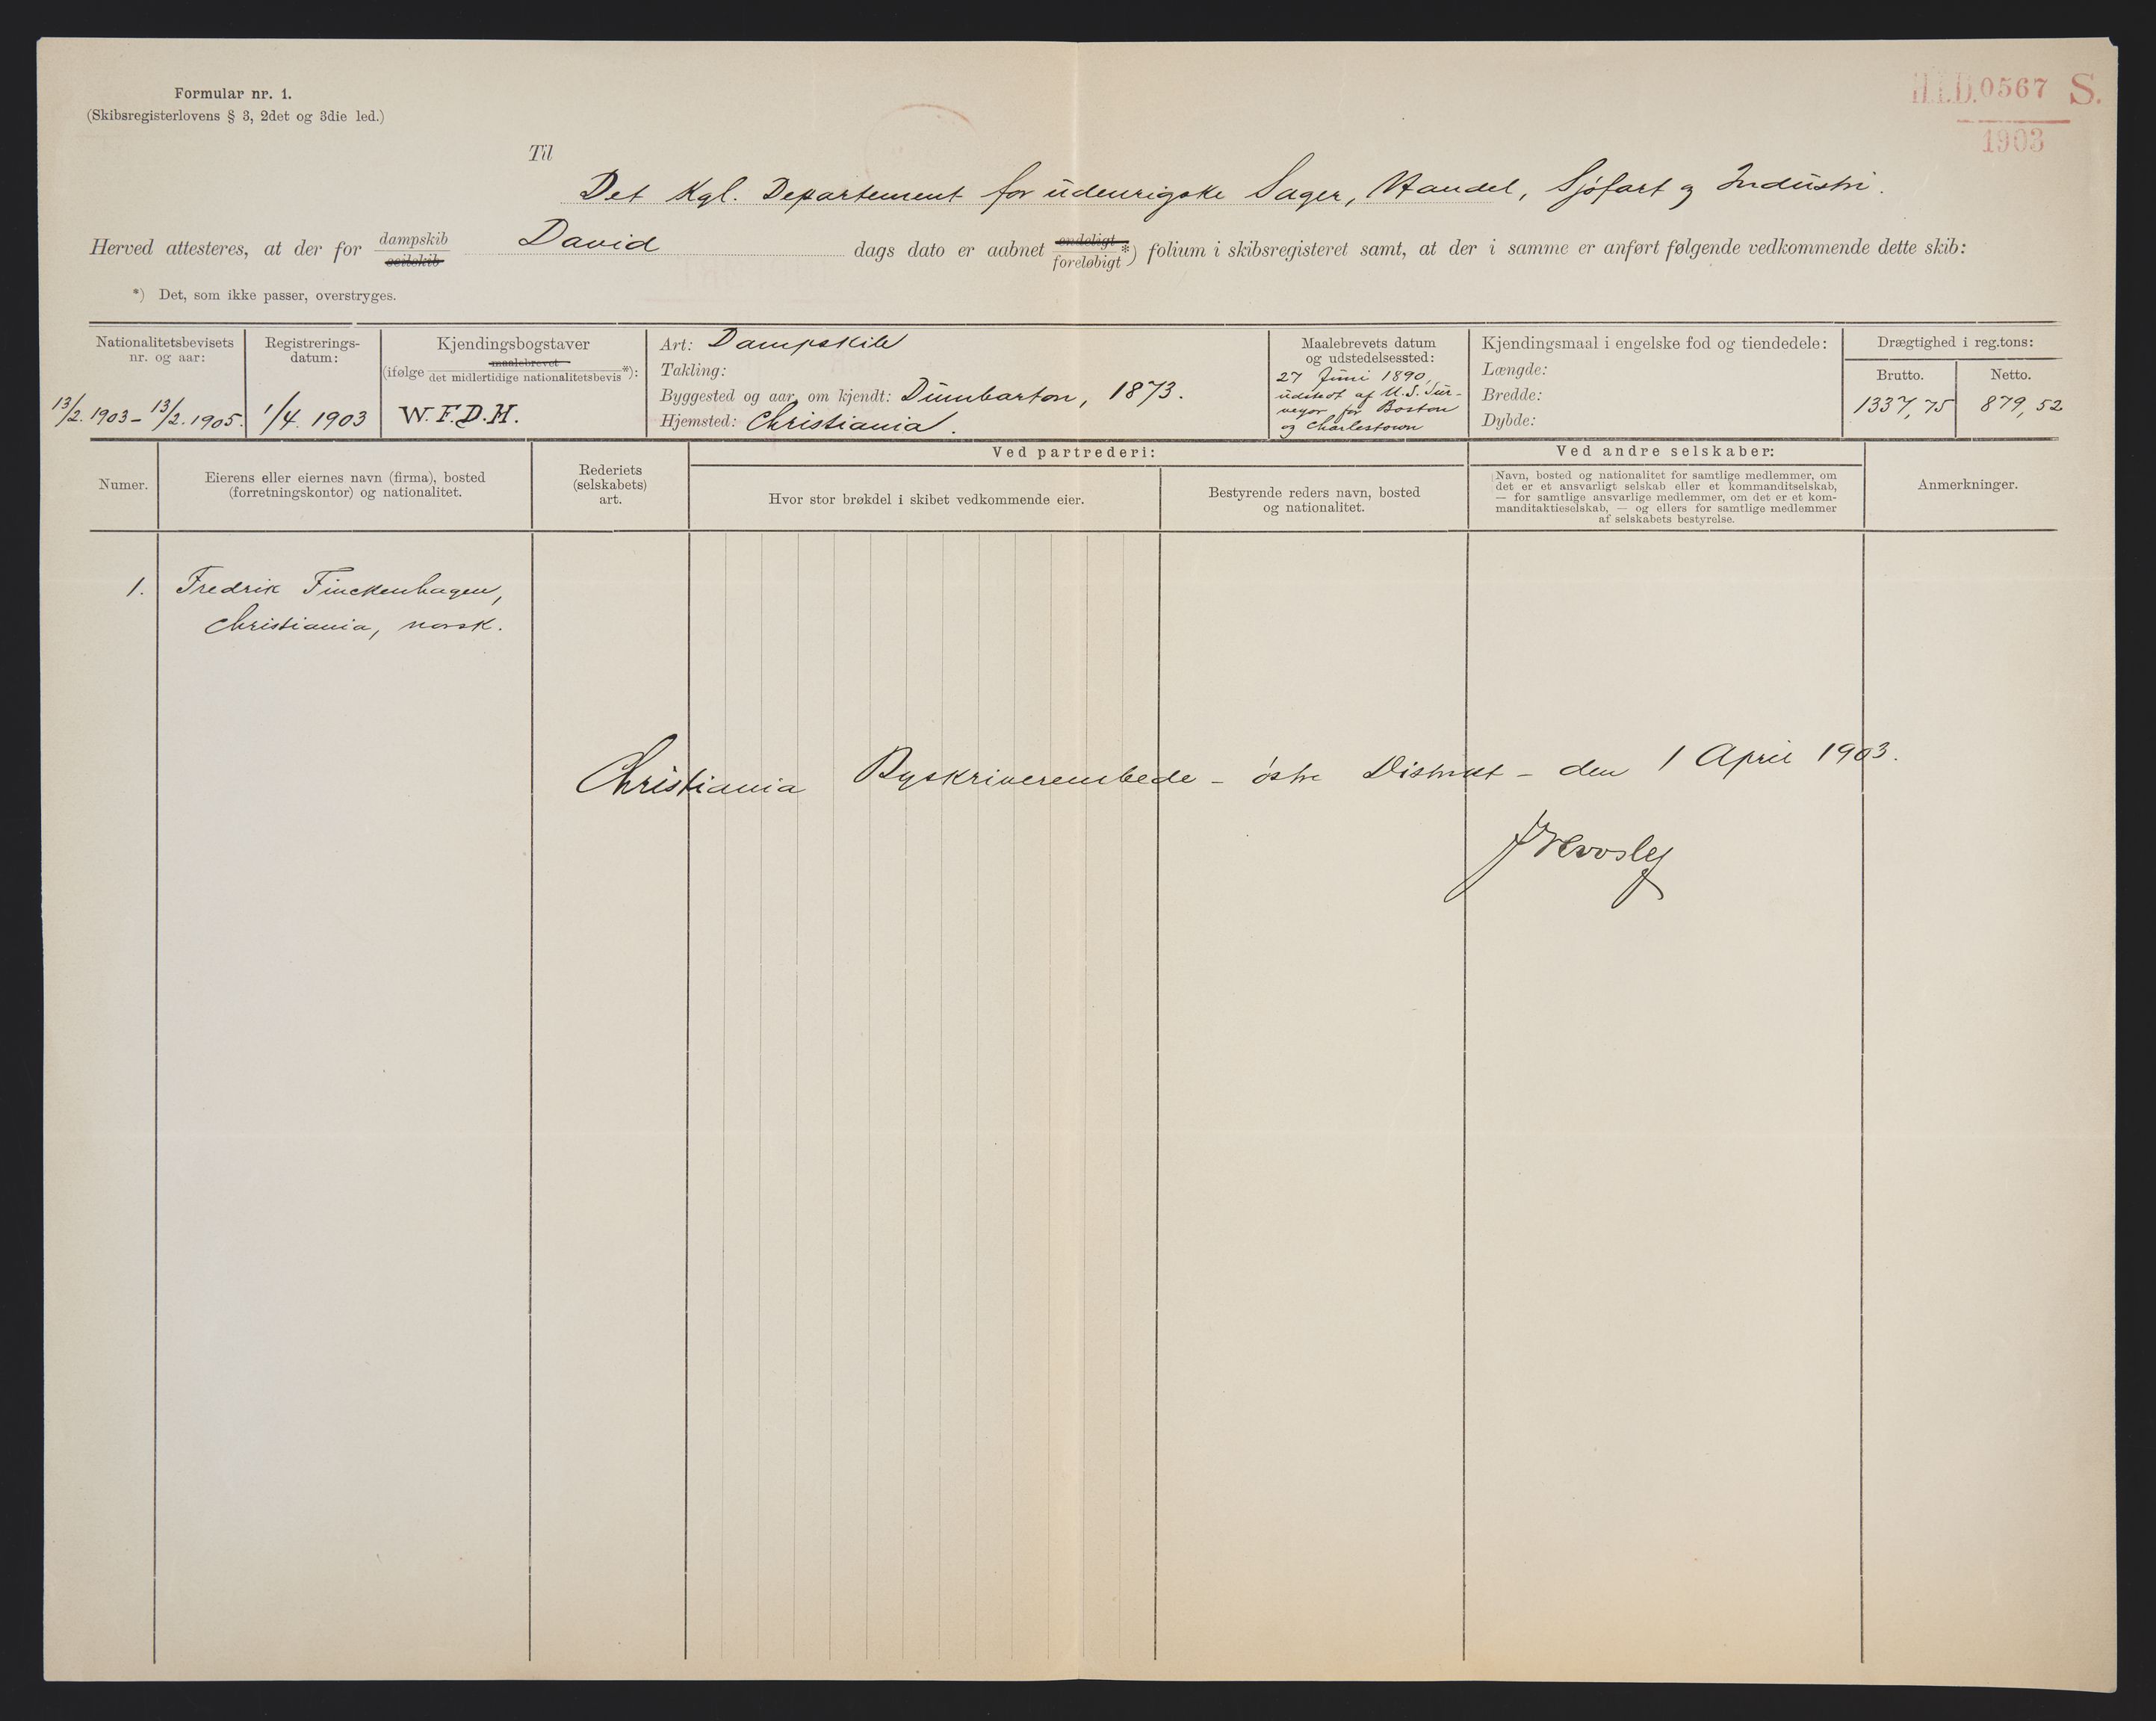 Formular nr. 1.
(Skibsregisterlovens § 3, 2det og 3die led.)
H.I.D. 0567 S.
1903
Til
Det Kgl. Departement for udenrigske Sager, Handel, Sjøfart og Industri.
Herved attesteres, at der for dampskib seilskib David dags dato er aabnet endeligt foreløbigt *) folium i skibsregisteret samt, at der i samme er anført følgende vedkommende dette skib:
*) Det, som ikke passer, overstryges.
Nationalitetsbevisets
nr. og aar:
13/2. 1903 – 13/2. 1905.
Registrerings-
datum:
1/4. 1903
Kjendingsbogstaver
(ifølge maalebrevet det midlertidige nationalitetsbevis *):
W.F.D.H.
Art: Dampskib
Takling:
Byggested og aar, om kjendt: Dumbarton, 1873.
Hjemsted: Christiania.
Maalebrevets datum
og udstedelsessted:
27 Juni 1890,
udstedt af U.S. Sur-
veyor for Boston
og Charlestown
Kjendingsmaal i engelske fod og tiendedele:
Længde:
Bredde:
Dybde:
Drægtighed i reg.tons:
Brutto.
1337,75
Netto.
879,52
Numer.
Eierens eller eiernes navn (firma), bosted
(forretningskontor) og nationalitet.
Rederiets
(selskabets)
art.
Ved partrederi:
Hvor stor brøkdel i skibet vedkommende eier.
Bestyrende reders navn, bosted
og nationalitet.
Ved andre selskaber:
Navn, bosted og nationalitet for samtlige medlemmer, om
det er et ansvarligt selskab eller et kommanditselskab,
— for samtlige ansvarlige medlemmer, om det er et kom-
manditaktieselskab, — og ellers for samtlige medlemmer
af selskabets bestyrelse.
Anmerkninger.
1. Fredrik Finckenhagen,
Christiania, norsk.
Christiania Byskriverembede – østre Distrikt – den 1 April 1903.